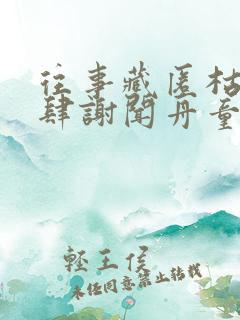 往事藏匿枯
肆謝聞丹童
輕王侯
未经同意禁止转载